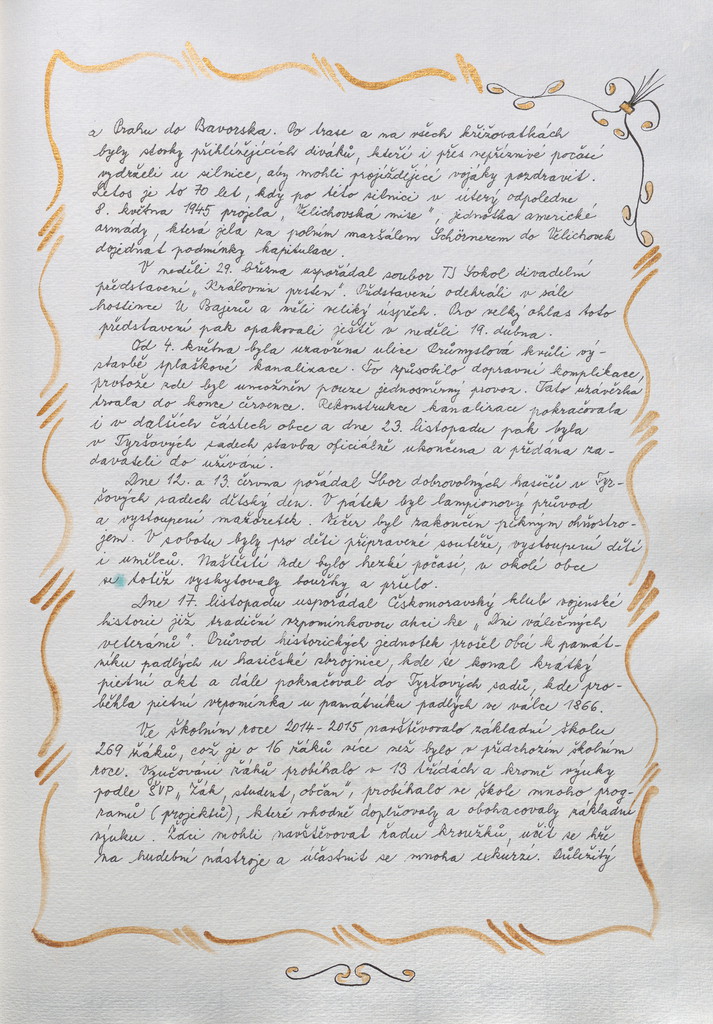 a Prahu do Bavorska. Po trase a na všech křižovatkách
byly stovky přihlížejících diváků, kteří i přes nepříznivé počasí
vydrželi u silnice, aby mohli projíždějící vojáky pozdravit.
Letos je to 70 let, kdy po této silnici v úterý odpoledne
8. května 1945 projela „Velichovská mise", jednotka americké
armády, která jela za polním maršálem Schörnerem do Velichovek
dojednat podmínky kapitulace.
V neděli 29. března uspořádal soubor TJ Sokol divadelní
představení „Královnin prsten". Představení odehráli v sále
hostince U Bajerů a měli veliký úspěch. Pro velký ohlas toto
představení pak opakovali ještě v neděli 19. dubna.
Od 4. května byla uzavřena ulice Průmyslová kvůli vý-
stavbě splaškové kanalizace. To způsobilo dopravní komplikace,
protože zde byl umožněn pouze jednosměrný provoz. Tato uzávěrka
trvala do konce července. Rekonstrukce kanalizace pokračovala
i v dalších částech obce a dne 23. listopadu pak byla
v Tyršových sadech stavba oficiálně ukončena a předána za-
davateli do užívání.
Dne 12. a 13. června pořádal Sbor dobrovolných hasičů v Tyr-
šových sadech dětský den. V pátek byl lampionový průvod
a vystoupení mažoretek. Večer byl zakončen pěkným ohňostro-
jem. V sobotu byly pro děti připravené soutěže, vystoupení dětí
i umělců. Naštěstí zde bylo hezké počasí, v okolí obce
se totiž vyskytovaly bouřky a pršelo.
Dne 17. listopadu uspořádal Českomoravský klub vojenské
historie již tradiční vzpomínkovou akci ke „Dni válečných
veteránů". Průvod historických jednotek prošel obcí k památ-
níku padlých u hasičské zbrojnice, kde se konal krátký
pietní akt a dále pokračoval do Tyršových sadů, kde pro-
běhla pietní vzpomínka u památníku padlých ve válce 1866.
Ve školním roce 2014-2015 navštěvovalo základní školu
269 žáků, což je o 16 žáků více než bylo v předchozím školním
roce. Vyučování žáků probíhalo v 13 třídách a kromě výuky
podle ŠVP „Žák, student, občan", probíhalo ve škole mnoho prog-
ramů (projektů), které vhodně doplňovaly a obohacovaly základní
výuku. Žáci mohli navštěvovat řadu kroužků, učit se hře
na hudební nástroje a účastnit se mnoha exkurzí. Důležitý